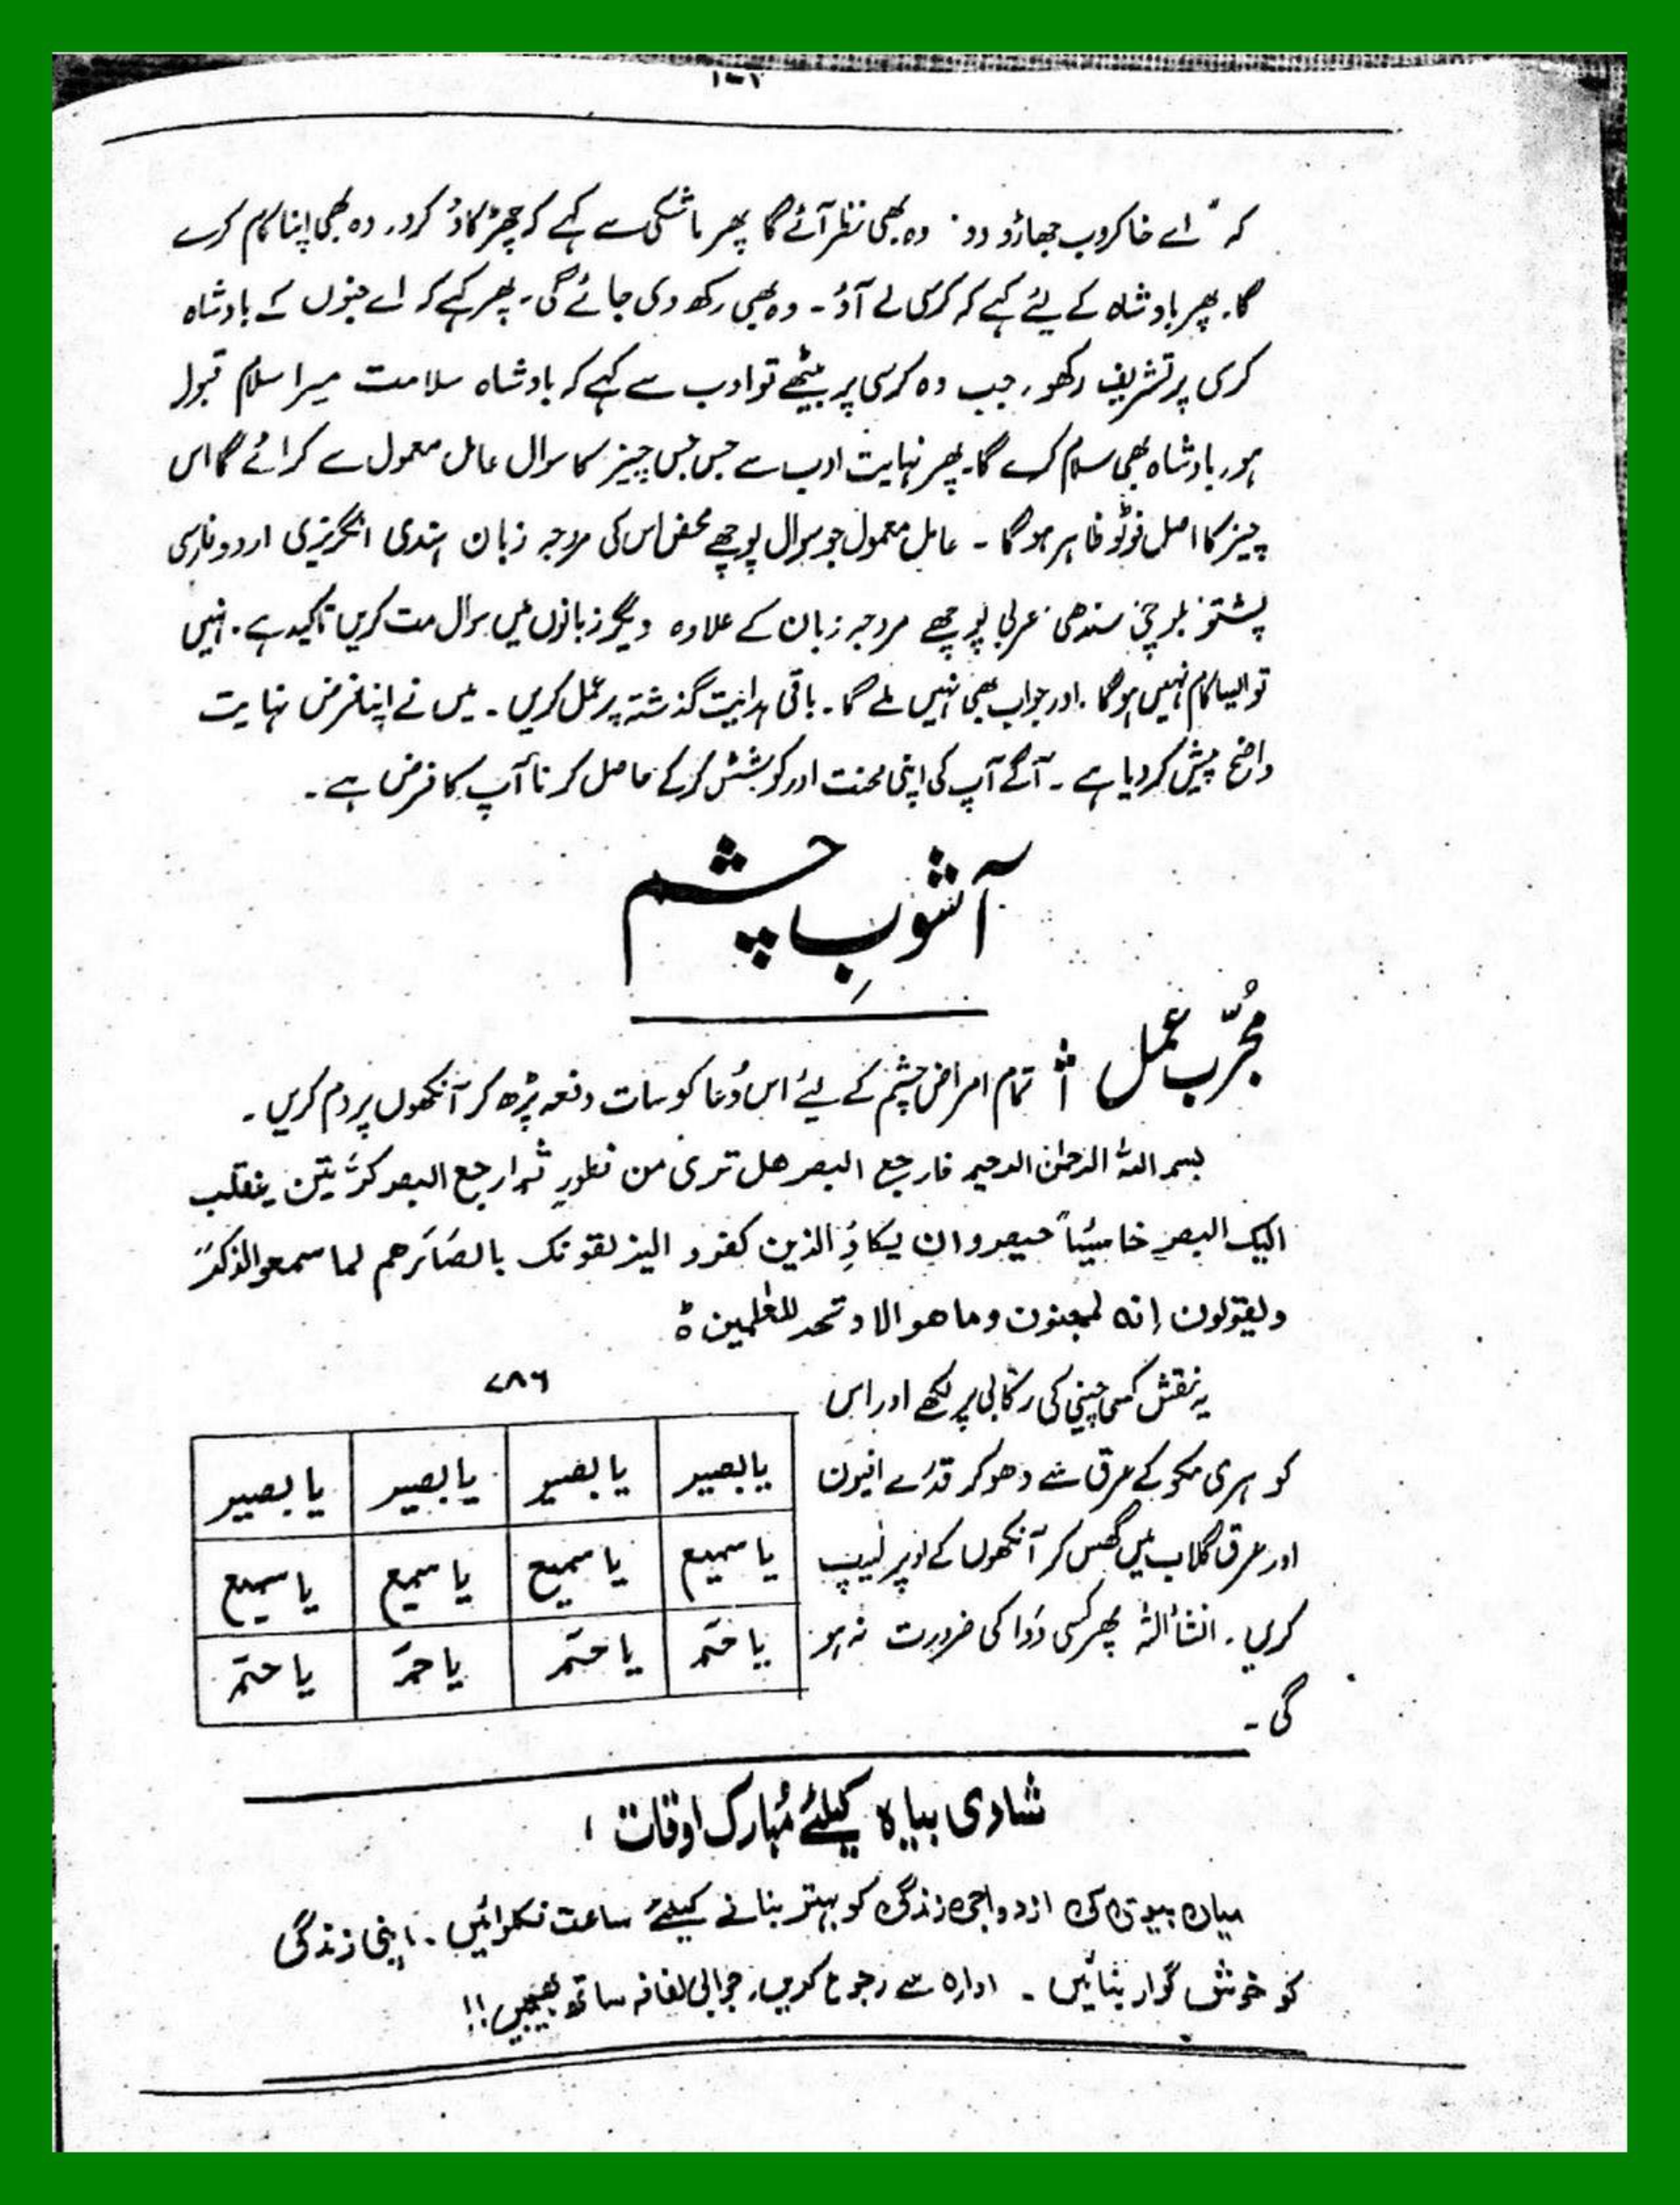 کہ "اے خاکروب جھاڑو دو" وہ بھی نظر آئے گا پھر ماشکی سے کہے کہ چھڑکاؤ کرو۔ وہ بھی اپنا کام کرے
گا۔ پھر بادشاہ کے لیئے کہے کہ کرسی لے آؤ۔ وہ بھی رکھ دی جائے گی۔ پھر کہے کہ اے جنوں کے بادشاہ
کرسی پر تشریف رکھو۔ جب وہ کرسی پر بیٹھے تو ادب سے کہے کہ بادشاہ سلامت میرا سلام قبول
ہو۔ بادشاہ بھی سلام کرے گا۔ پھر نہایت ادب سے جس جس چیز کا سوال عامل معمول سے کرائے گا اس
چیز کا اصل فوٹو ظاہر ہوگا ۔ عامل معمول جو سوال پوچھے محض اس کی مروجہ زبان ہندی انگریزی اردو فارسی
پشتو بلوچی سندھی عربی پوچھے مروجہ زبان کے علاوہ دیگر زبانوں میں سوال مت کریں تاکید ہے۔ نہیں
تو ایسا کام نہیں ہوگا۔ اور جواب بھی نہیں ملے گا۔ باقی ہدایت گذشتہ پر عمل کریں۔ میں نے اپنا فرض نہایت
واضح پیش کر دیا ہے ۔ آگے آپ کی اپنی محنت اور کوشش کرکے حاصل کرنا آپ کا فرض ہے۔
آشوبِ چشم
مُجرّب عمل
تمام امراض چشم کے لیئے اس دُعا کو سات دفعہ پڑھ کر آنکھوں پر دم کریں ۔
بسم اللہ الرحمٰن الرحیم فارجع البصر هل تریٰ من فطورِ ثم ارجع البصر کرّتین ینقلب
الیک البصرِ خاسِئاً حیصر وان یکادُ الذین کفرو الیزلقونک بالصَائرهم لما سمعوالذکرَ
ولیقولون إنه لمجنون وما هوالا وتحد للعٰلمین ہ
۷۸۶
یہ نقش کسی چینی کی رکابی پر لکھے اور اس
کو ہری مکو کے عرق سے دھو کر قدرے افیون
اور عرق گلاب میں گھس کر آنکھوں کے اوپر لیپ
کریں۔ انشاء اللہ پھر کسی دَوا کی ضرورت نہ ہو
گی ۔
یا بصیر یا بصیر یا بصیر یا بصیر
یا سمیع یا سمیع یا سمیع یا سمیع
شادی بیاہ کیلئے مُبارک اوقات ؛
میاں بیوی کی ازدواجی زندگی کو بہتر بنانے کیلئے ساعت نکلوائیں۔ اپنی زندگی
کو خوش گوار بنائیں ۔ ادارہ سے رجوع کریں۔ جوابی لفافہ ساتھ بھیجیں!!